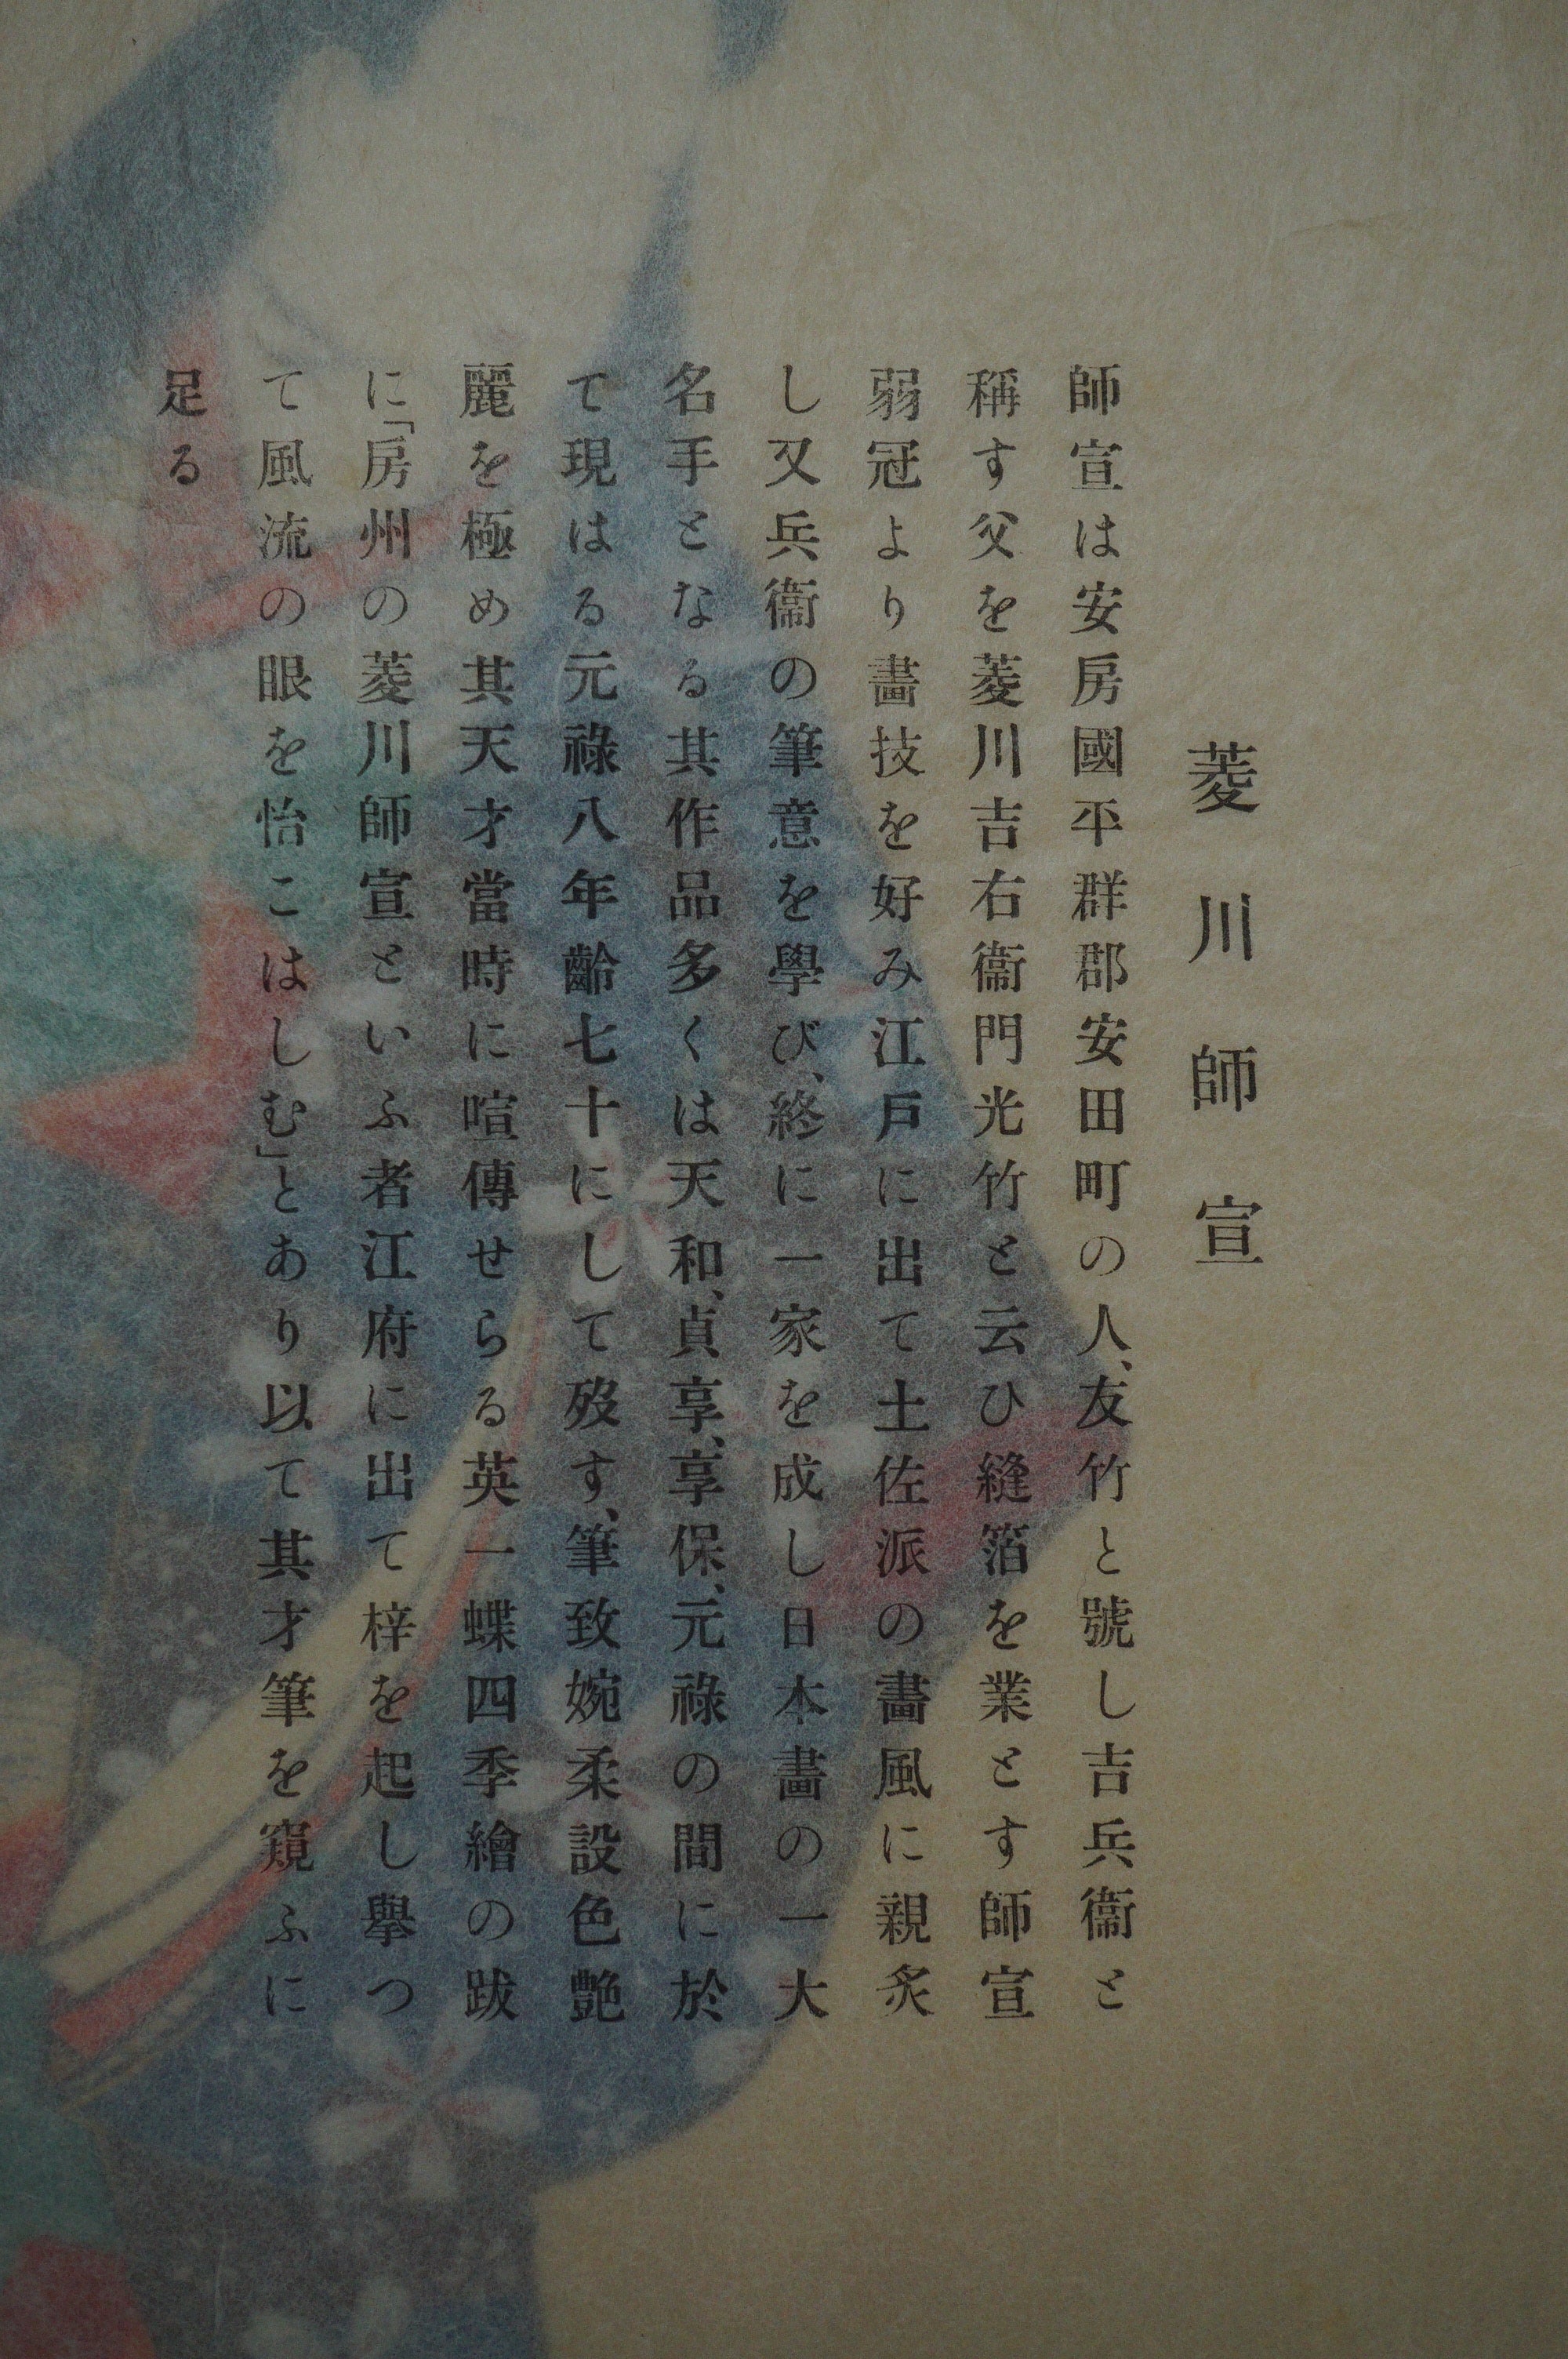 菱川師宣
師宣は安房國平群郡安田町の人、友竹と號し吉兵衞と
稱す父を菱川吉右衞門光竹と云ひ縫箔を業とす師宣
弱冠より畵技を好み江戸に出て土佐派の畵風に親炙
し又兵衞の筆意を學び、終に一家を成し日本畵の一大
名手となる其作品多くは天和、貞享、享保、元祿の間に於
て現はる元祿八年齡七十にして歿す、筆致婉柔設色艶
麗を極め其天才當時に喧傳せらる英一蝶四季繪の跋
に「房州の菱川師宣といふ者江府に出て梓を起し擧つ
て風流の眼を怡こはしむ」とあり以て其才筆を窺ふに
足る